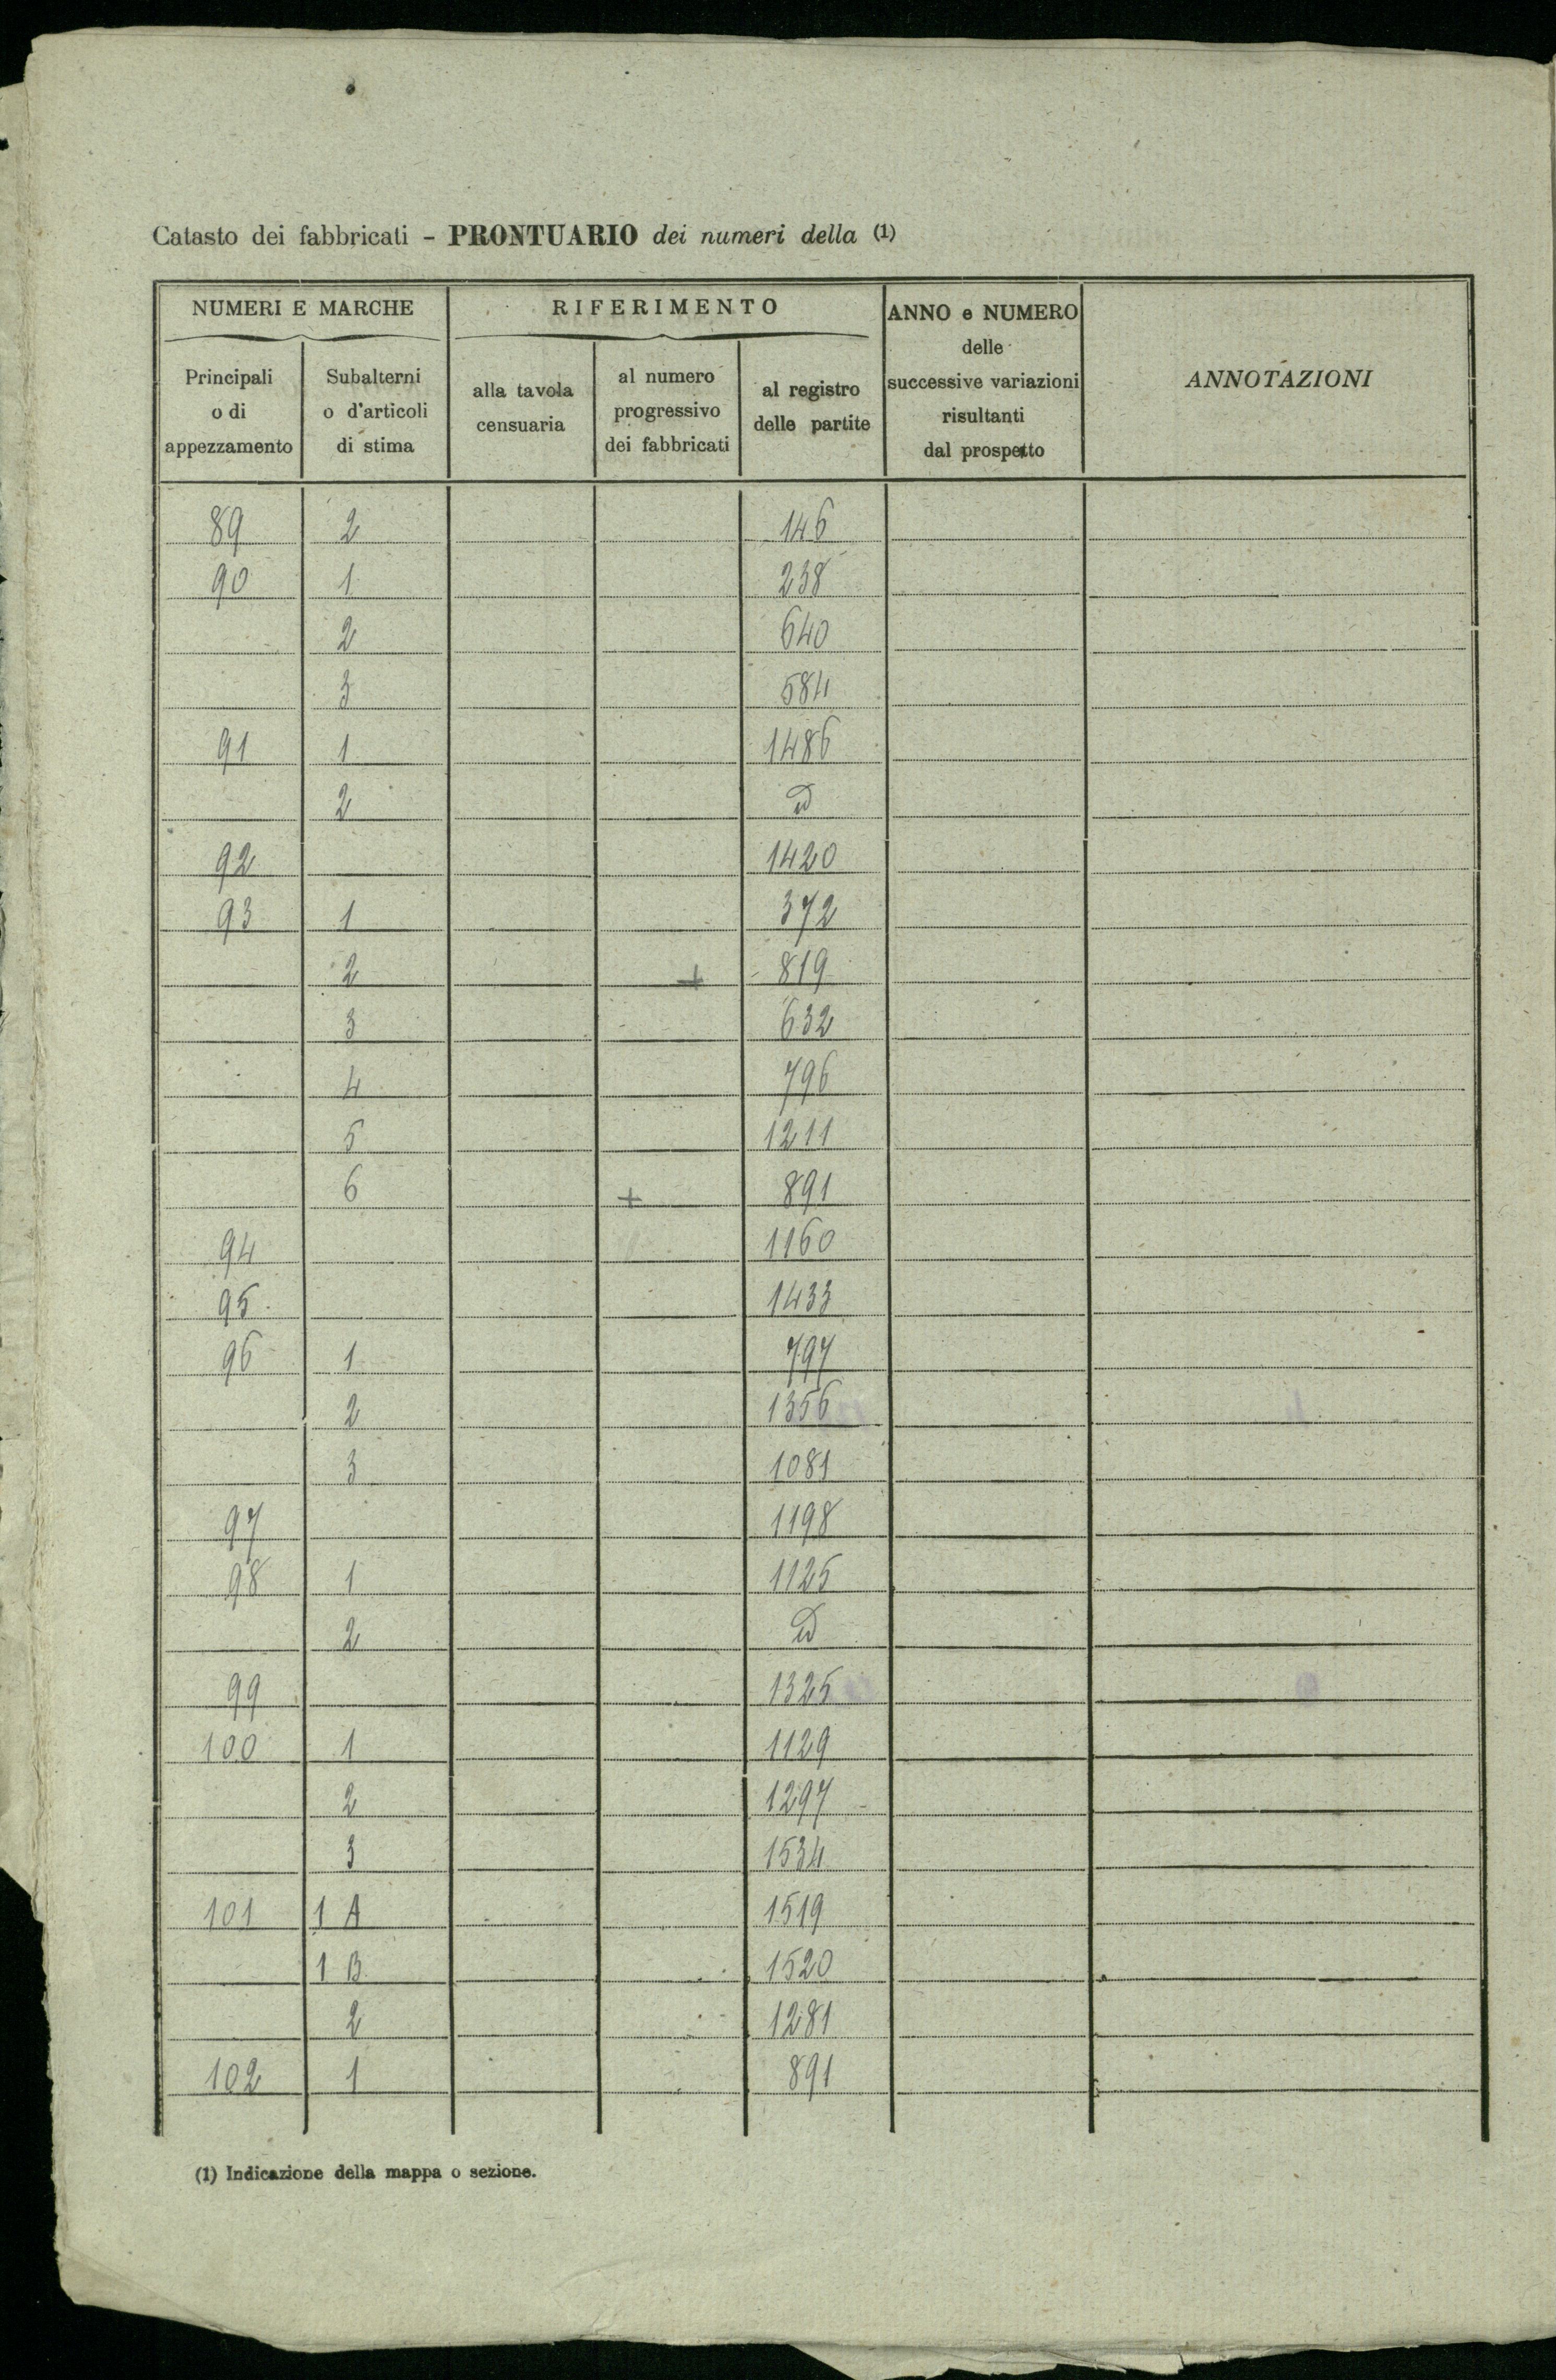 Catasto dei fabbricati - PRONTUARIO dei numeri della (1)
NUMERI E MARCHE
RIFERIMENTO
ANNO e NUMERO
delle
successive variazioni
risultanti
dal prospetto
ANNOTAZIONI
Principali
o di
appezzamento
Subalterni
o d'articoli
di stima
alla tavola
censuaria
al numero
progressivo
dei fabbricati
al registro
delle partite
89 2 146
90 1 238
2 640
3 584
91 1 1486
2 id
92 1420
93 1 372
2 + 819
3 632
4 796
5 1211
6 + 891
94 1160
95 1433
96 1 797
2 1356
3 1081
97 1198
98 1 1125
2 id
99 1325
100 1 1129
2 1297
3 1534
101 1 A 1519
1 B 1520
2 1281
102 1 891
(1) Indicazione della mappa o sezione.